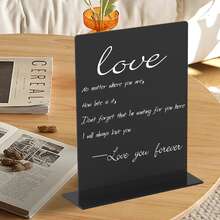 love
No matter where you are,
How late is it,
Don't forget that I'm waiting for you here
I will always love you
—Love you forever
CEREAL